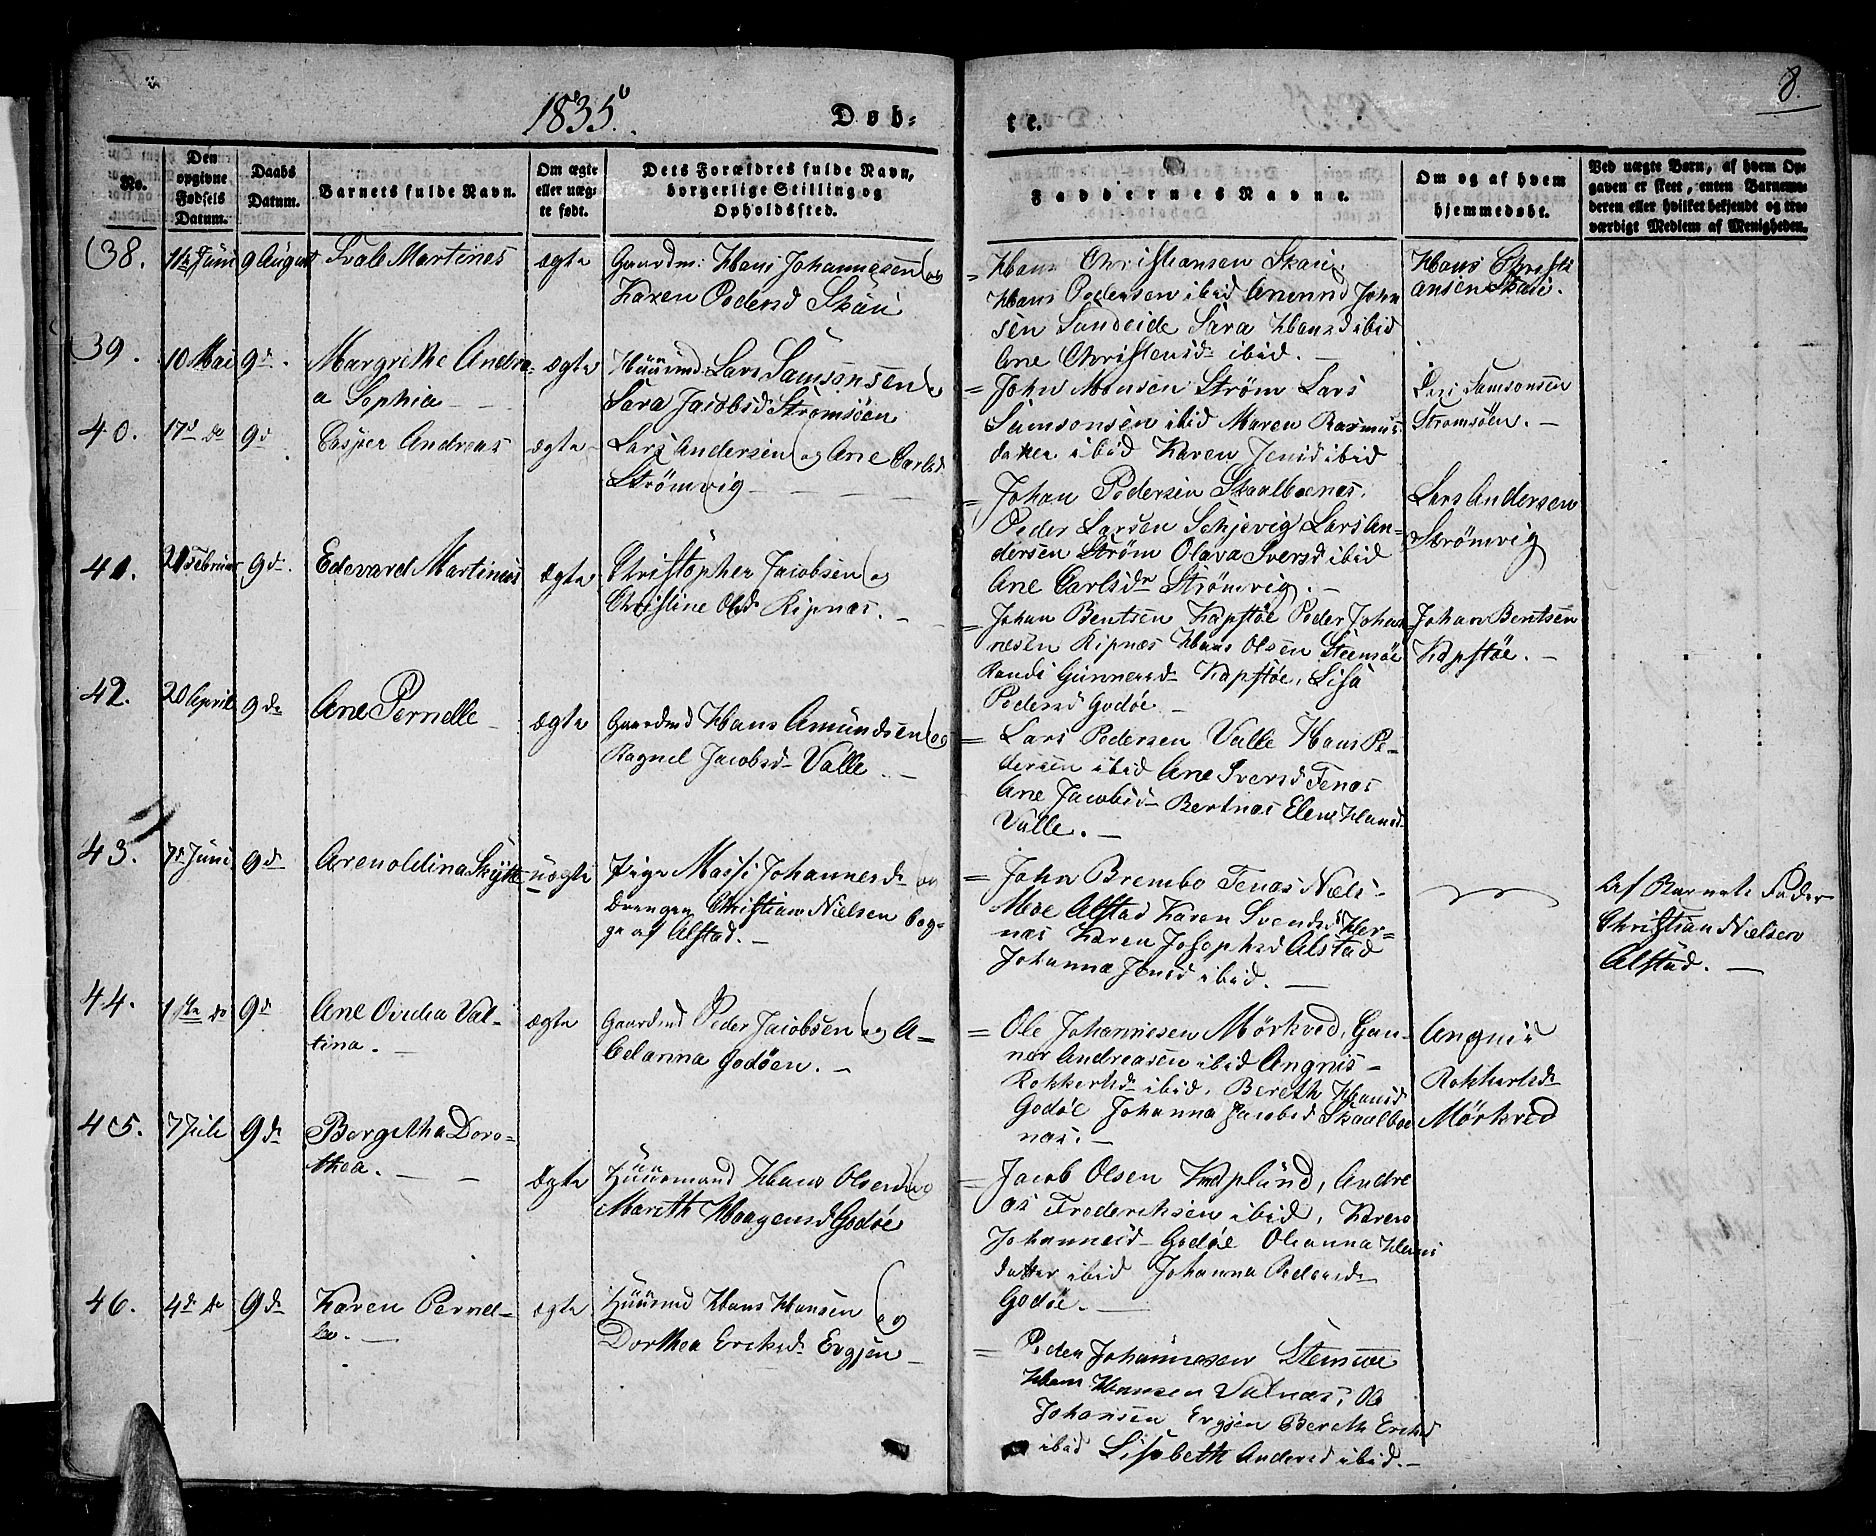 8.
1835.
Døb-
te.
No.
Den
opgivne
Fødsels
Datum.
Daabs
Datum.
Barnets fulde Navn.
Om ægte
eller uæg-
te født.
Dets Forældres fulde Navn,
borgerlige Stilling og
Opholdssted.
Faddernes Navne.
Om og af hvem
hjemmedøbt.
Ved uægte Børn, af hvem Op-
gaven er skeet, enten Barnemo-
deren eller hvilket bekjendt og tro-
værdigt Medlem af Menigheden.
38.
Juni
9 August
Martines
ægte
Gaardm: Hans Johannesen og
Karen Pedersd Skau
= Hans Christiansen Skau,
Hans Pedersen ibid John
sen Sandeide Sara Hansd ibid
Ane Christensd ibid. —
Hans Christi
ansen Skau.
39.
10 Mai
9 d.
Margrethe Andre-
a Sophia —
ægte
Huusmd Lars Samsonsen og
Sara Jacobsd Strømsøen
= John Monsen Strøm Lars
Samsonsen ibid Maren Rasmus
datter ibid Karen Jensd ibid
Lars Samsonsen
Strømsøen. —
40.
17d do
9 d
Casper Andreas
ægte
Lars Andersen og Ane Carlsd
Strømvig —
= Johan Pedersen Skaalboenæs.
Peder Larsen Schjevig Lars An-
dersen Strøm Olava Iversd ibid
Ane Carlsdr Strømvig. —
Lars Andersen
Strømvig
41.
21 Februar
9 d.
Edevard Martinus
ægte
Christopher Jacobsen og
Christine Olsd Ripnæs. —
= Johan Bentsen Kapstøe Peder Johan
nesen Ripnæs Hans Olsen Steensøe
Randi Gunnersd Kapstøe, Lisa
Pedersd Godøe —
Johan Bentsen
Kapstøe. —
42.
20 April
9 do
Ane Pernelle —
ægte
Gaardmd Hans Amundsen og
Ragnel Jacobsd Valle. —
= Lars Pedersen Valle Hans Pe-
dersen ibid Ane Iversd Tenæs
Ane Jacobsd Bertnæs Elen Hansd
Valle. —
43.
7d Juni
9 d
Arenoldina Skytt
uægte
Pige Massi Johannesd og
Drengen Christian Nielsen beg-
ge af Alstad. —
= John Brembo Tenæs Niels
Moe Alstad Karen Svendsd Her-
næs Karen Josephsd Alstad
Johanna Jensd ibid. —
Af Barnets Fader
Christian Nielsen
Alstad. —
44.
1ste do
9 d
Ane Ovidia Val-
tina. —
ægte
Gaardmd Peder Jacobsen og A-
delanna Godøen. —
= Ole Johannesen Mørkved, Gun-
ner Andreasen ibid Angnis
Rokkertsd ibid, Bereth Hansd
Godøe Johanna Jacobsd Skaalboe
næs. —
Angnis
Rokkertsd
Mørkved
45.
7 Juli
9 d
Bergitha Doro-
thea. —
ægte
Huusmand Hans Olsen og
Mareth Haagensd Godøe
= Jacob Olsen Kaplund, Andre
as Frederichsen ibid, Karen
Johannesd Godøe Olianna Hans
datter ibid Johanna Pedersd
Godøe. —
46.
4d do
9 do
Karen Pernel-
le. —
ægte
Huusmd Hans Hansen og
Dorthea Ericksd Evgjen —
= Peder Johannesen
Hans Hansen Valnæs, Ole
Johansen Evgjen Bereth Ericksd
ibid Lisabeth Andersd ibid. —